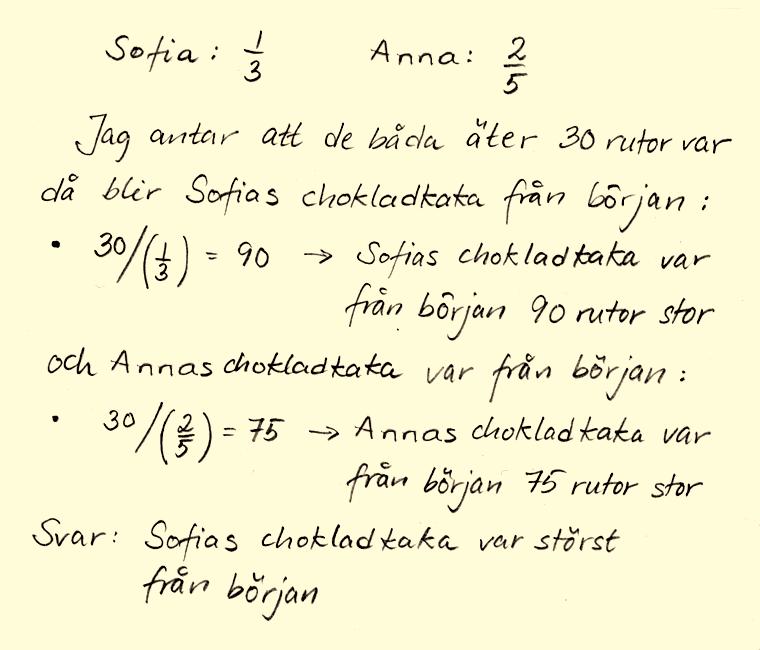 Sofia: 1/3 Anna: 2/5
Jag antar att de båda äter 30 rutor var
då blir Sofias chokladkaka från början:
• 30/(1/3) = 90 → Sofias chokladkaka var
från början 90 rutor stor
och Annas chokladkaka var från början:
• 30/(2/5) = 75 → Annas chokladkaka var
från början 75 rutor stor
Svar: Sofias chokladkaka var störst
från början